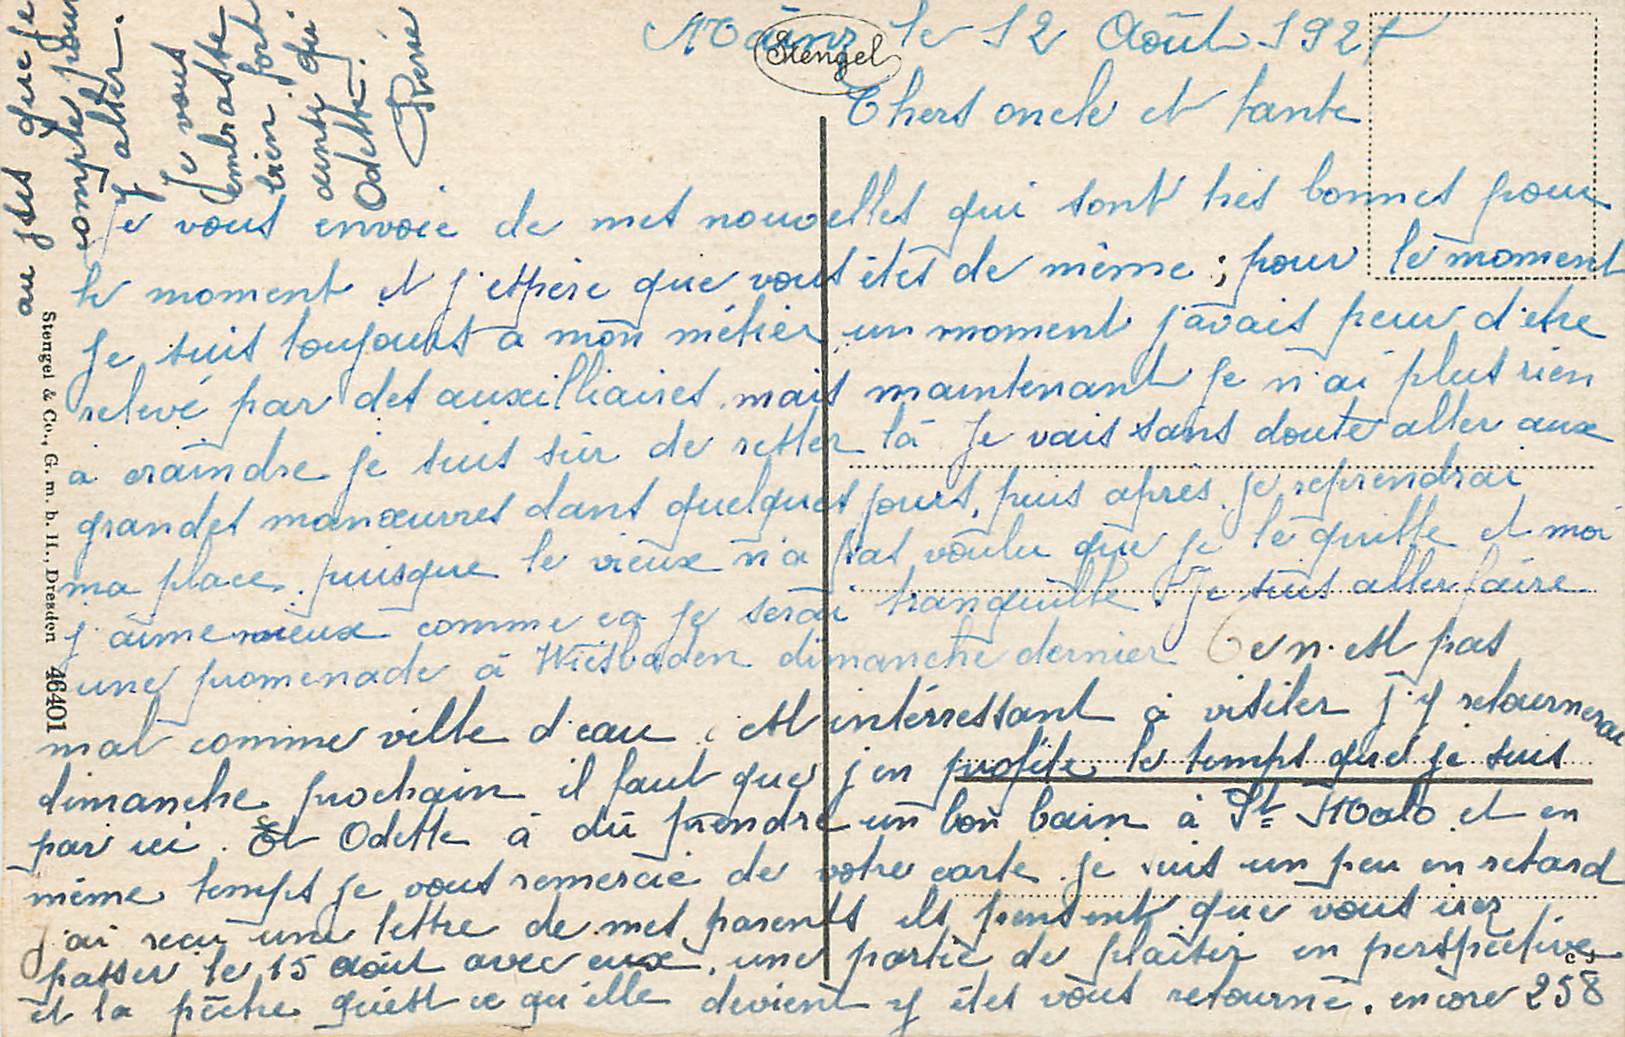 Mainz le 12 Août 1927
Stengel
Chers oncle et tante
Je vous envoie de mes nouvelles qui sont très bonnes pour
le moment et j'espère que vous êtes de même ; pour le moment
je suis toujours a mon métier un moment j'avais peur d'etre
relevé par des auxilliaires mais maintenant je n'ai plus rien
à craindre je suis sûr de rester là je vais sans doute aller aux
grandes manœuvres dans quelques jours, puis après je reprendrai
ma place. puisque le vieux n'a pas voulu que je le quitte et moi
j'aime mieux comme ca je serai tranquille. Je suis aller faire
une promenade à Wiesbaden dimanche dernier Ce n'est pas
mal comme ville d'eau, est intérressant à visiter j'y retournerai
dimanche prochain il faut que j'en profite le temps que je suis
par ici. Et Odette à dû prendre un bon bain à St Malo et en
même temps je vous remercie de votre carte je suis un peu en retard
j'ai reçu une lettre de mes parents ils pensent que vous irez
passer le 15 août avec eux, une partie de plaisir en perspective
et la pêche qu'est ce qu'elle devient y êtes vous retourné. encore 258
au jus que je
compte pour
y aller.
Je vous
embrasse
bien fort
ainsi qu'
Odette.
René
Stengel & Co., G. m. b. H., Dresden 46401